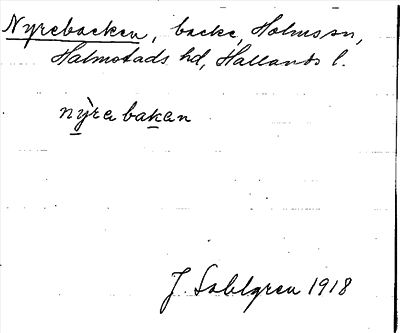 Nyrebacken, backe, Holms sn,
Halmstads hd, Hallands l.
nỳra bakan
J. Sahlgren 1918